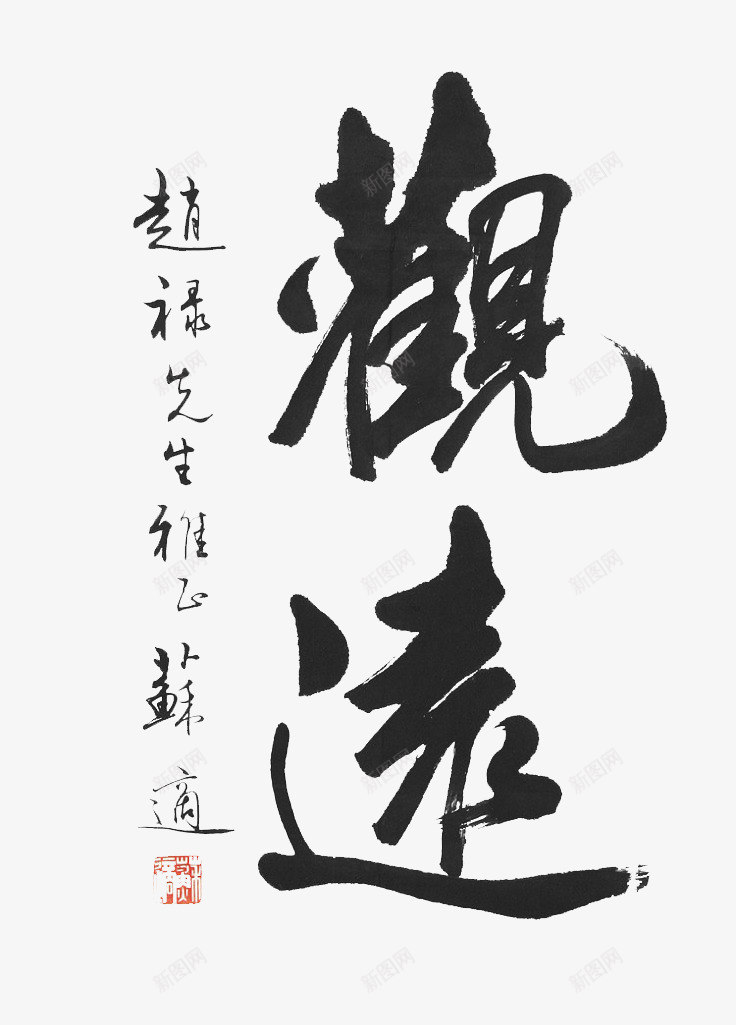 觀遠
趙禄先生雅正蘇適
新图网